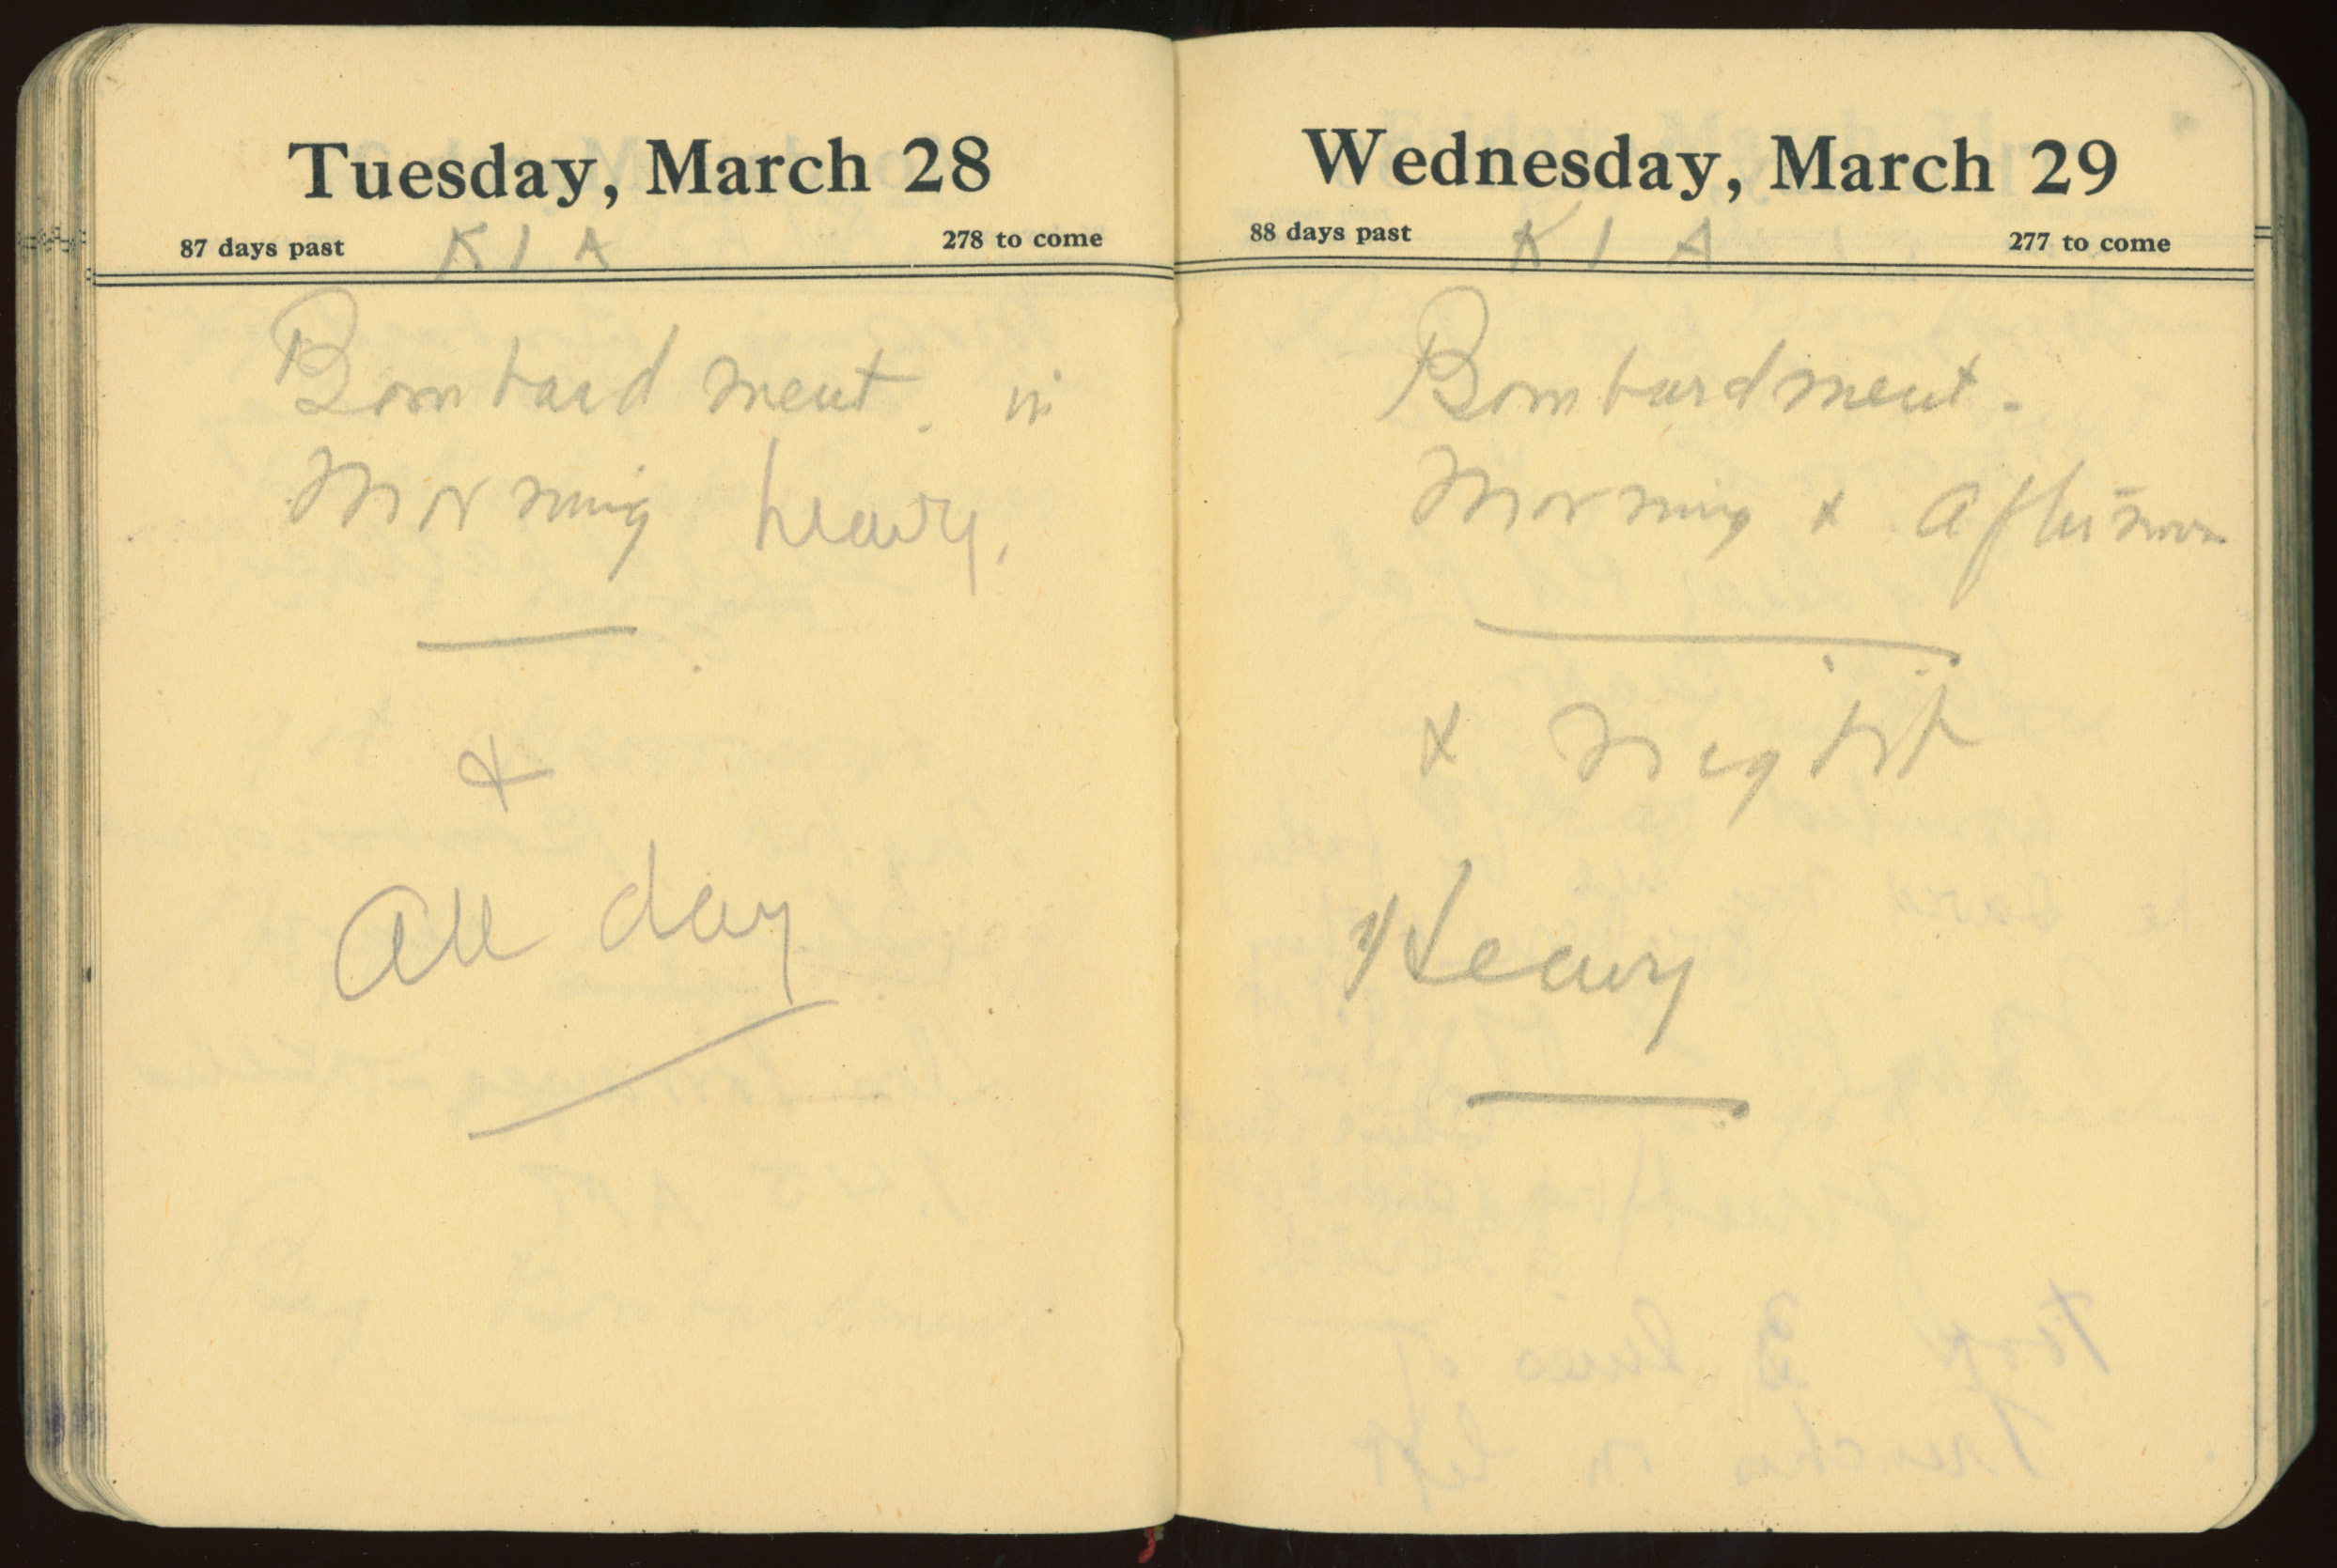 Tuesday, March 28
87 days past K I A 278 to come
Bombardment. in
Morning heavy.
&
All day
Wednesday, March 29
88 days past K I A 277 to come
Bombardment.
Morning & Afternoon
& Night
Heavy